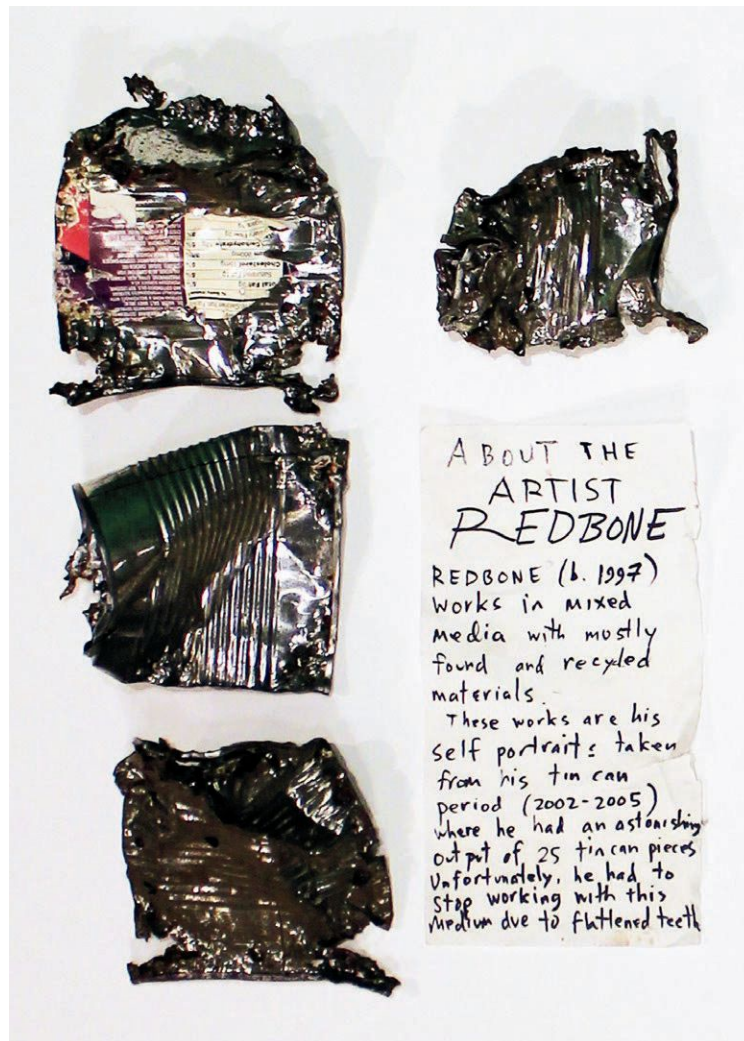 Carbohydrate
Cholesterol
Saturated Fat
Total Fat
ABOUT THE
ARTIST
REDBONE
REDBONE (b. 1997)
works in mixed
media with mostly
found and recycled
materials.
These works are his
self portraits taken
from his tin can
period (2002-2005)
where he had an astonishing
output of 25 tin can pieces
Unfortunately, he had to
stop working with this
medium due to flattened teeth